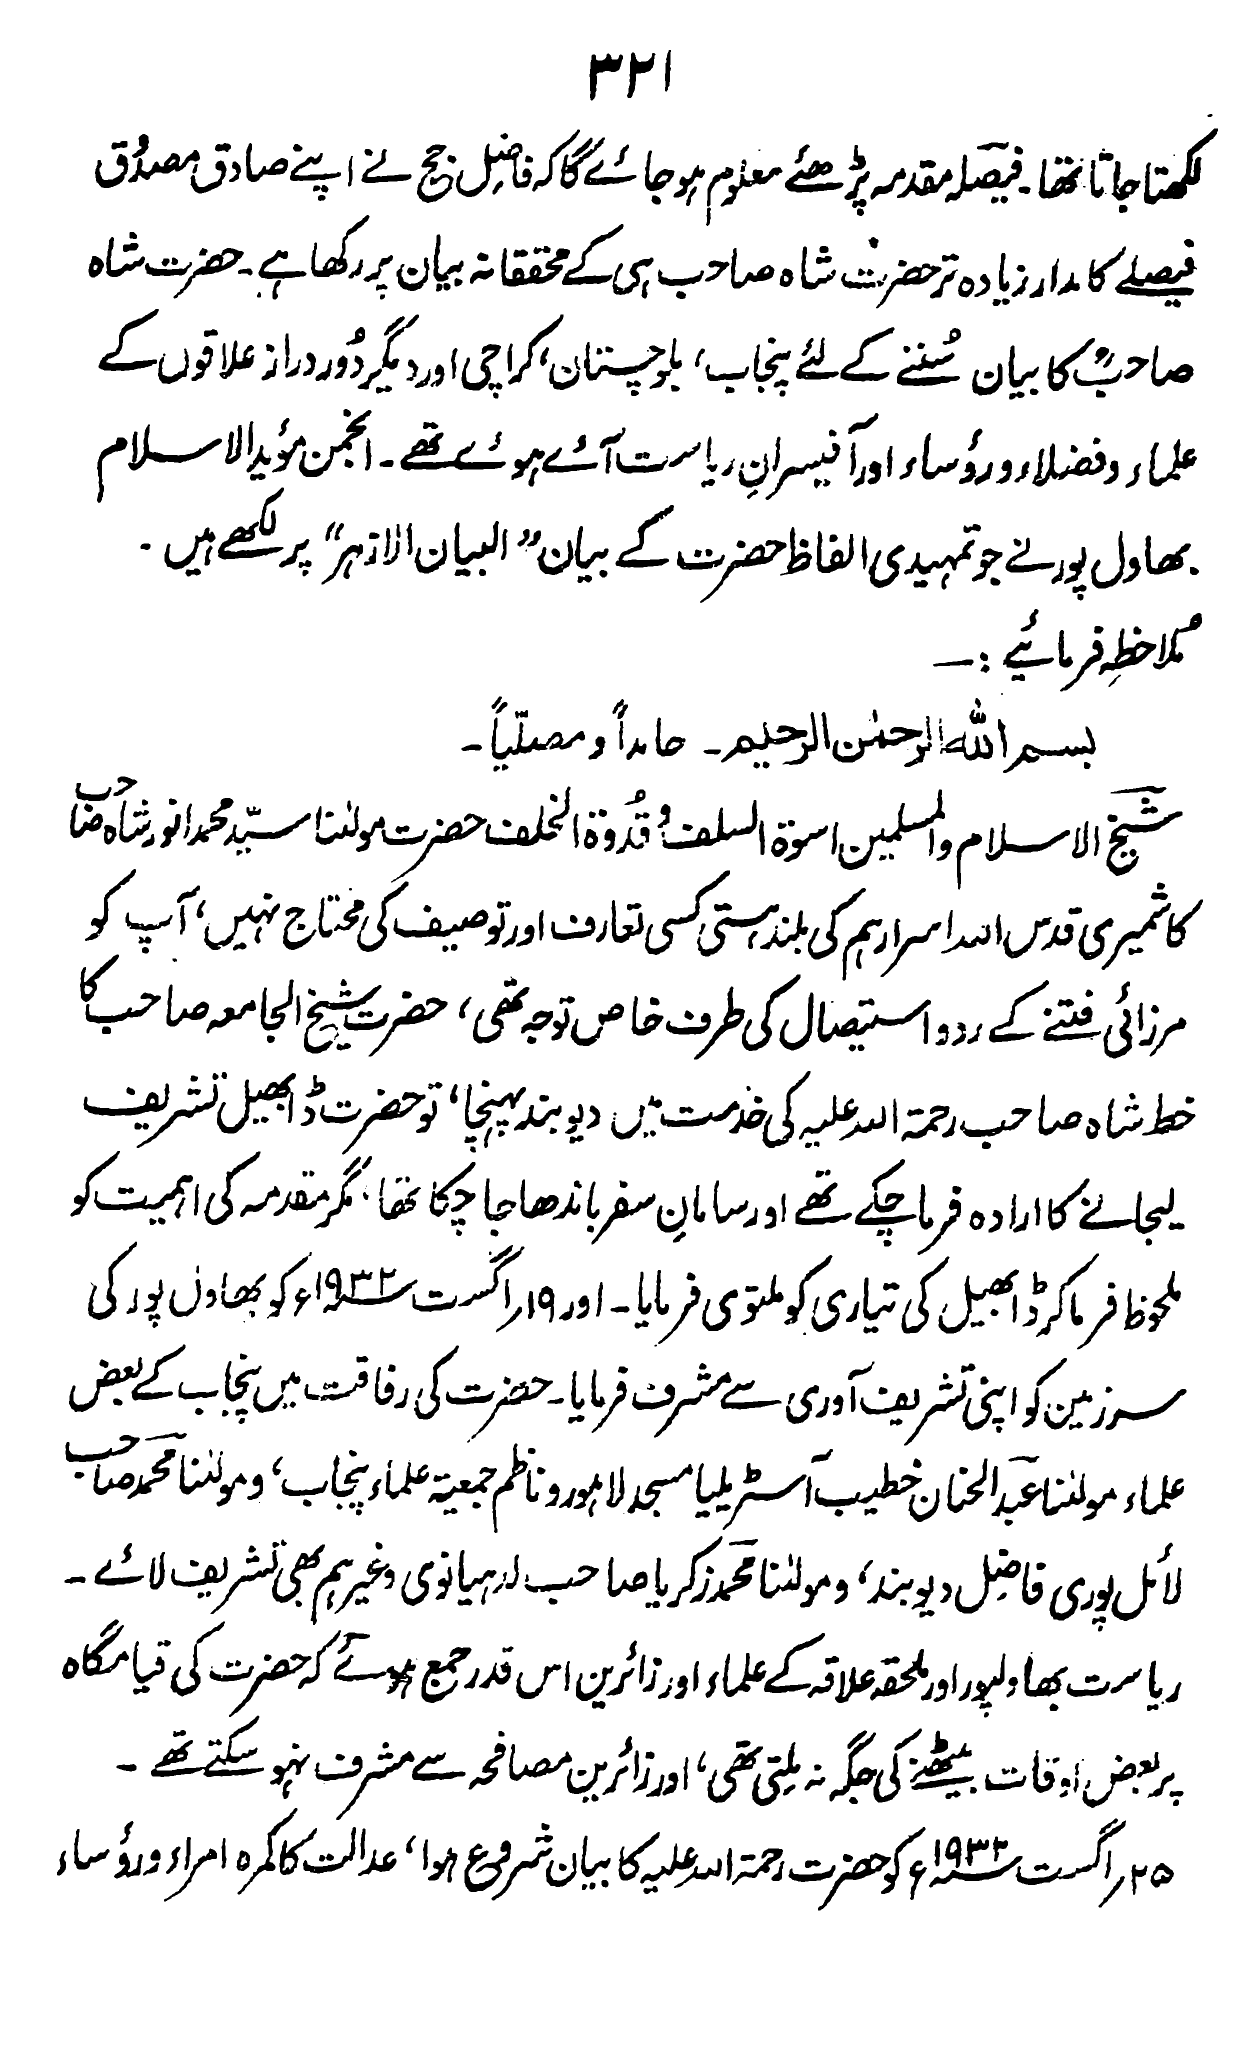 ۳۲۱
لکھتا جاتا تھا۔ فیصلہ مقدمہ پڑھئے معلوم ہو جائے گا کہ فاضِل جج نے اپنے صادق مصدُوق
فیصلے کا مدار زیادہ تر حضرت شاہ صاحب ہی کے محققانہ بیان پر رکھا ہے۔ حضرت شاہ
صاحبؒ کا بیان سُننے کے لئے پنجاب، بلوچستان، کراچی اور دیگر دُور دراز علاقوں کے
علماء و فضلاء و رؤساء اور آفیسرانِ ریاست آئے ہوئے تھے۔ انجمن مؤید الاسلام
بھاول پور نے جو تمہیدی الفاظ حضرت کے بیان "البیان الازہر" پر لکھے ہیں۔
مُلاخظہ فرمائیے :—
بسم اللہ الرحمٰن الرحیم۔ حامداً و مصلّیاً۔
شیخ الاسلام والمسلمین اسوۃ السلف و قُدوۃ الخلف حضرت مولٰنا سیّد محمد انور شاہ صاحب
کاشمیری قدس اللہ اسرارہم کی بلند ہستی کسی تعارف اور توصیف کی محتاج نہیں، آپ کو
مرزائی فتنے کے رد و استیصال کی طرف خاص توجہ تھی، حضرت شیخ الجامعہ صاحب کا
خط شاہ صاحب رحمۃ اللہ علیہ کی خدمت میں دیوبند پہنچا، تو حضرت ڈابھیل تشریف
لیجانے کا ارادہ فرما چکے تھے اور سامانِ سفر باندھا جا چکا تھا، مگر مقدمہ کی اہمیت کو
ملحوظ فرما کر ڈابھیل کی تیاری کو ملتوی فرمایا۔ اور ۱۹؍ اگست ۱۹۳۲ء کو بھاول پور کی
سرزمین کو اپنی تشریف آوری سے مشرف فرمایا۔ حضرت کی رفاقت میں پنجاب کے بعض
علماء مولٰنا عبد الحنان خطیب آسٹریلیا مسجد لاہور و ناظم جمعیۃ علماء پنجاب، و مولٰنا محمد صاحب
لائل پوری فاضِل دیوبند، و مولٰنا محمد زکریا صاحب لدہیانوی وغیرہم بھی تشریف لائے۔
ریاست بھاولپور اور ملحقہ علاقہ کے علماء اور زائرین اس قدر جمع ہوئے کہ حضرت کی قیامگاہ
پر بعض اوقات بیٹھنے کی جگہ نہ ملتی تھی، اور زائرین مصافحہ سے مشرف نہو سکتے تھے۔
۲۵؍ اگست ۱۹۳۲ء کو حضرت رحمۃ اللہ علیہ کا بیان شروع ہوا، عدالت کا کمرہ امراء و رؤساء